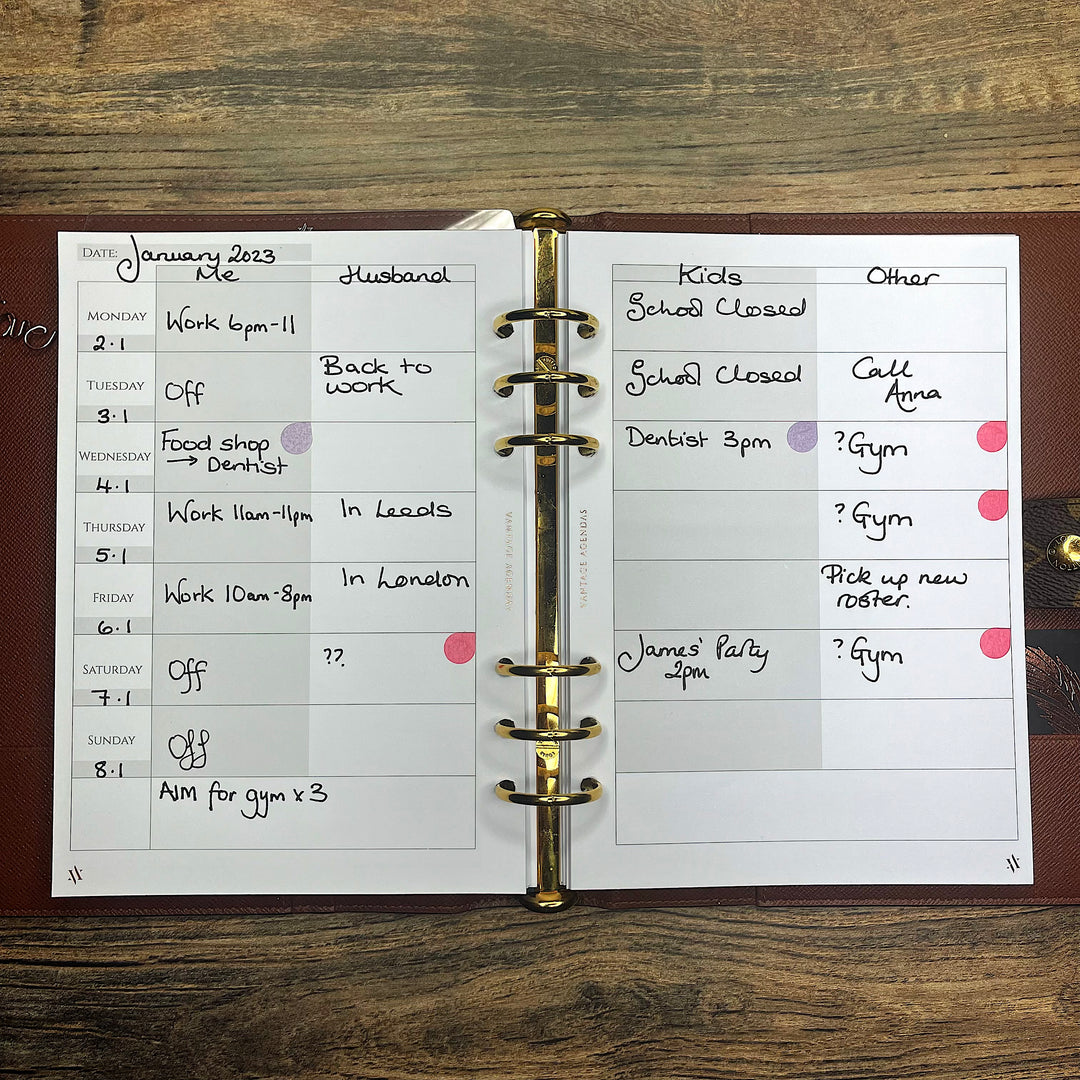 DATE: January 2023
Me Husband Kids Other
MONDAY
2.1
Work 6pm-11
School Closed
TUESDAY
3.1
Off
Back to
work
School Closed
Call
Anna
WEDNESDAY
4.1
Food shop
→ Dentist
Dentist 3pm
? Gym
THURSDAY
5.1
Work 11am-11pm
In Leeds
? Gym
FRIDAY
6.1
Work 10am-8pm
In London
Pick up new
roster.
SATURDAY
7.1
Off
??
James' Party
2pm
? Gym
SUNDAY
8.1
Off
AIM for gym x 3
VANTAGE AGENDAS
VANTAGE AGENDAS